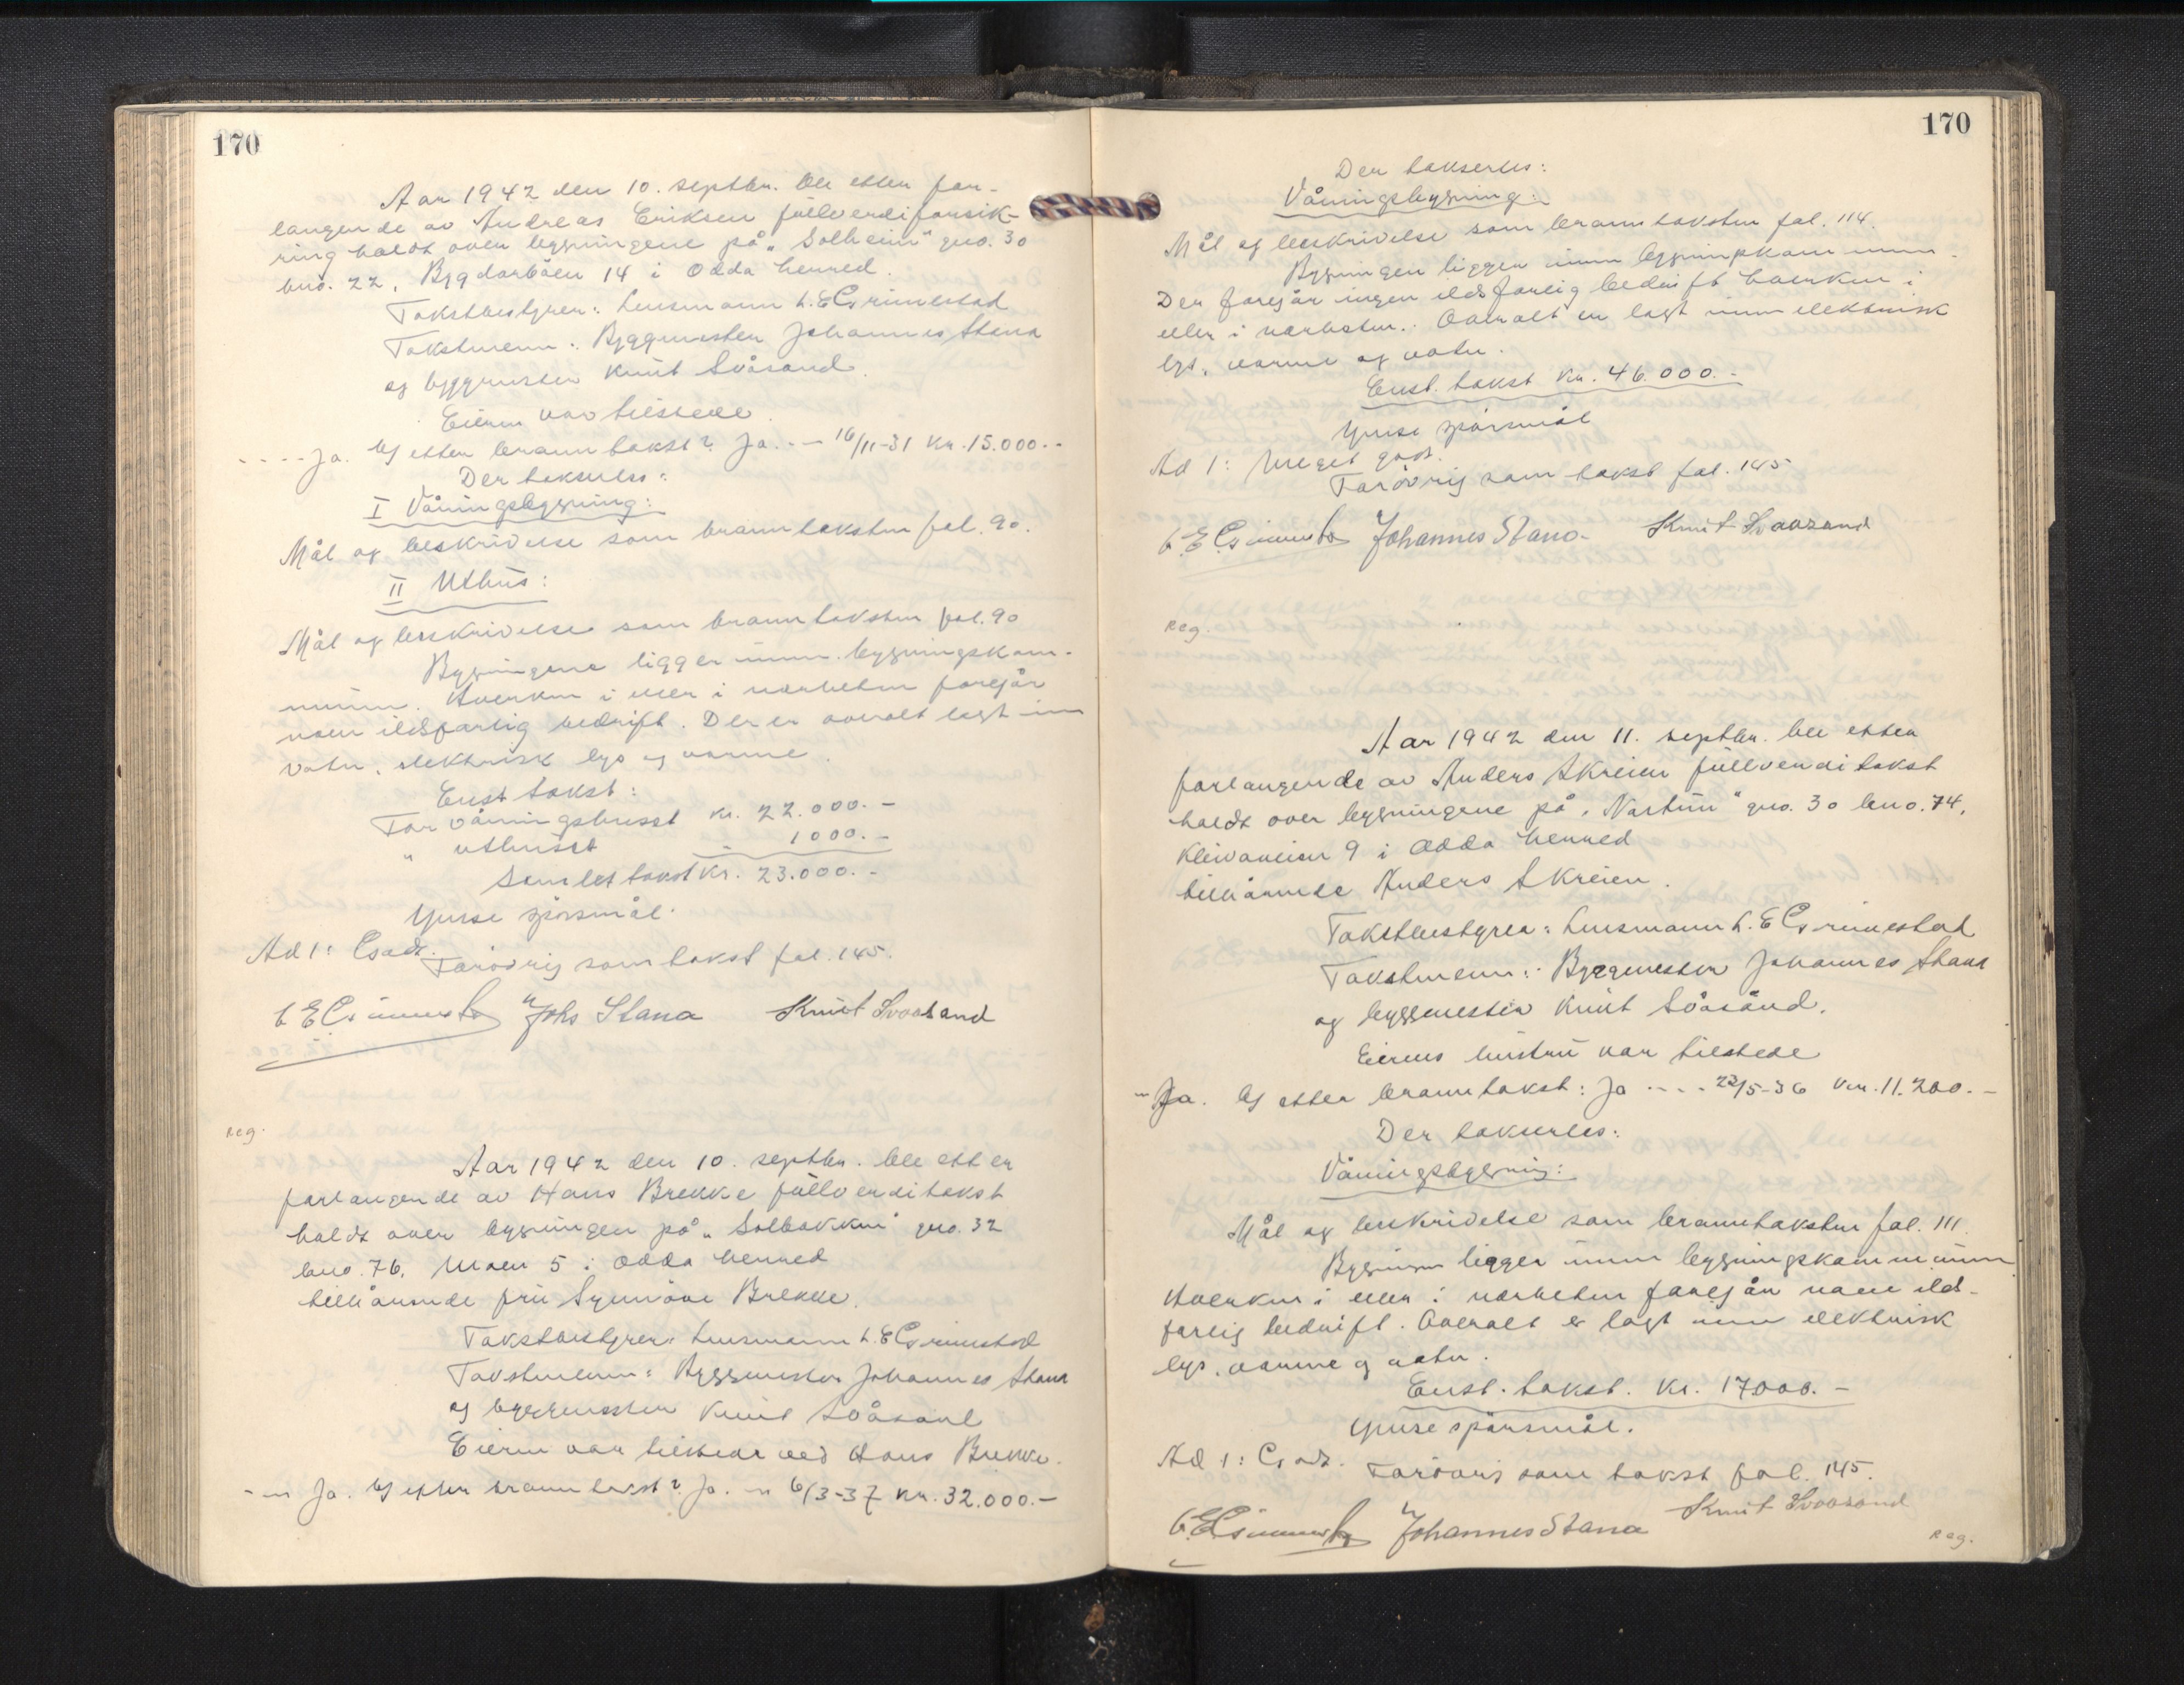 170
Aar 1942 den 10. septbr. ble etter for-
langende av Andreas Eriksen fullverdiforsik-
ring holdt over bygningene på „Solheim" gno. 30
bno. 22, Bygdarbøen 14 i Odda herred.
Takstbestyrer: Lensmann L. E Grimestad
Takstmenn: Byggmester Johannes Stana
og byggmester Knut Svåsand.
Eieren var tilstede.
- - - - Ja. Ny etter branntakst? Ja. - - 16/11-31 kr. 15.000.-
Der takseres:
I Våningsbygning:
Mål og beskrivelse som branntaksten fol. 90.
II Uthus:
Mål og beskrivelse som branntaksten fol. 90
Bygningene ligger innen bygningskom-
munen. Hverken i eller i nærheten foregår
noen ildsfarlig bedrift. Der er overalt lagt inn
vatn, elektrisk lys og varme.
Enst. takst:
For våningshuset kr. 22.000.-
" uthuset " 1000.-
Samlet takst kr. 23.000.-
Ymse spørsmål:
Ad 1: Godt.
Forøvrig som takst fol. 145.
L E Grimestad Johs Stana Knut Svaasand
Reg.
Aar 1942 den 10. septbr. ble etter
forlangende av Hans Brekke fullverditakst
holdt over bygningen på „Solbakken" gno. 32
bno. 76, Moen 5 i Odda herred
tilhørende fru Synnøve Brekke.
Takstbestyrer: Lensmann L. E Grimestad
Takstmenn: Byggmester Johannes Stana
og byggmester Knut Svåsand
Eieren var tilstede ved Hans Brekke.
- - Ja. Ny etter branntakst? Ja. - 6/3-37 kr. 32.000.-
170
Der takseres:
Våningsbygning:
Mål og beskrivelse som branntaksten fol. 114.
Bygningen ligger innen bygningskommunen.
Der foregår ingen ildsfarlig bedrift hverken i
eller i nærheten. Overalt er lagt inn elektrisk
lys, varme og vatn.
Enst. takst kr. 46.000.-
Ymse spørsmål
Ad 1: Meget godt.
Forøvrig som takst fol. 145
L. E Grimestad Johannes Stana Knut Svaasand
Reg.
Aar 1942 den 11. septbr. ble etter
forlangende av Anders Skreien fullverditakst
holdt over bygningene på „Nortun" gno. 30 bno. 74,
Kleivaveien 9 i Odda herred
tilhørende Anders Skreien.
Takstbestyrer: Lensmann L. E Grimestad
Takstmenn: Byggmester Johannes Stana
og byggmester Knut Svåsand.
Eierens hustru var tilstede
- Ja. Ny etter branntakst: Ja - - - - 22/5-36 kr. 11.200.-
Der takseres:
Våningsbygning:
Mål og beskrivelse som branntaksten fol. 111.
Bygningen ligger innen bygningskommunen
Hverken i eller i nærheten foregår noen ilds-
farlig bedrift. Overalt er lagt inn elektrisk
lys, varme og vatn.
Enst. takst. kr. 17000.-
Ymse spørsmål.
Ad 1: Godt.
Forøvrig som takst fol. 145.
L. E Grimestad Johannes Stana Knut Svaasand
Reg.